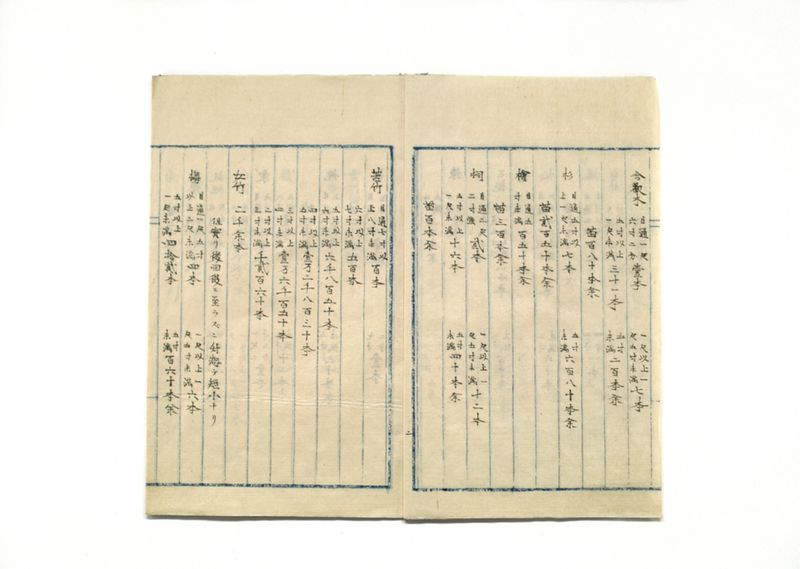 合歓木 目通一尺六寸二分 壹本 一尺以上一尺五寸未満 七本
五寸以上一尺未満 三十一本 五寸未満 二百本余
苗百八十本余
杉 目通五寸以上一尺未満 七本 五寸未満 六百八十本余
苗貳百五十本余
檜 目通五寸未満 百五十本余
苗三百本余
桐 目通二尺二寸 貳本 一尺以上一尺五寸未満 十二本
五寸以上一尺未満 十六本 五寸未満 四十本余
苗百本余
二
苦竹 目通七寸以上八寸未満 百本
六寸以上七寸未満 五百本
五寸以上六寸未満 六千八百五十本
四寸以上五寸未満 壹万二千八百三十本
三寸以上四寸未満 壹万六千百五十本
二寸以上三寸未満 千貳百六十本
女竹 二千余本
梅 目通一尺五寸以上二尺未満 四本 一尺以上一尺五寸未満 六本
五寸以上一尺未満 四拾貳本 五寸未満 百六十本余